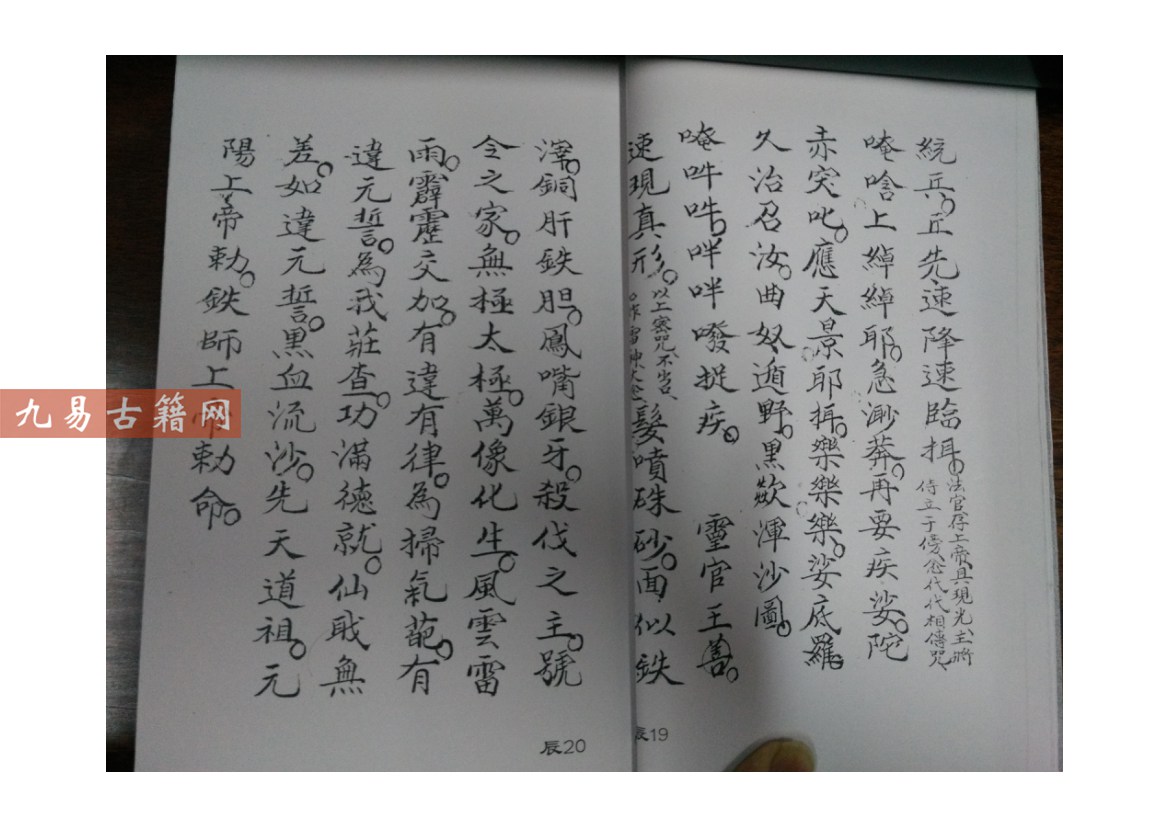 統兵。丘先速降速臨揖。法官存上帝具現光主將
侍立于傍念代代相傳咒
唵唅上綽綽耶。急渺莽。再要疾娑。陀
赤突叱。應天景耶揖。樂樂樂。娑底羅
久治召汝。曲奴遁野。黑歘渾沙圖。
唵吽吽。吽吽發捉疾。靈官王善。
速現真形。以上密咒不出口
髮噴硃砂。面似鉄
澤。銅肝鉄胆。鳳嘴銀牙。殺伐之主。號
令之家。無極太極。萬像化生。風雲雷
雨。霹靂交加。有違有律。為掃氣葩。有
違元誓。為我莊查。功滿德就。仙戢無
差。如違元誓。黑血流沙。先天道祖。元
陽上帝勅。鉄師上帝勅命。
辰20
辰19
九易古籍网